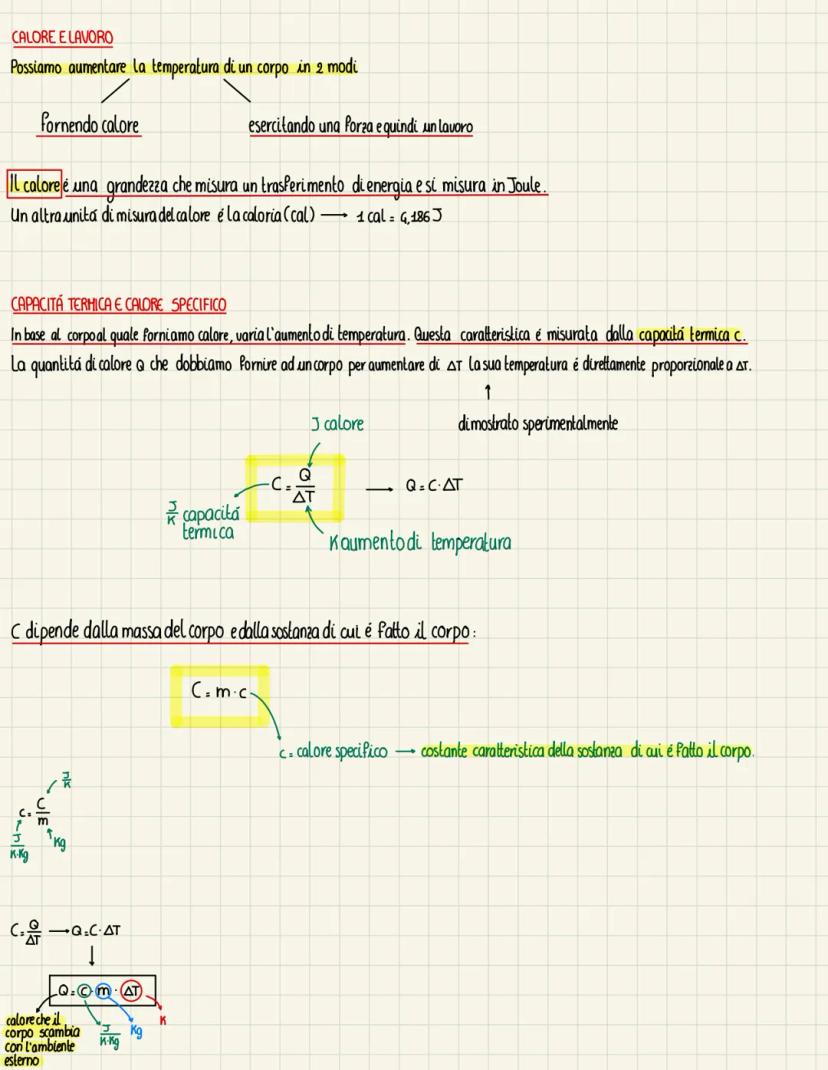 CALORE E LAVORO
Possiamo aumentare la temperatura di un corpo in 2 modi
fornendo calore
esercitando una forza e quindi un lavoro
Il calore é una grandezza che misura un trasferimento di energia e si misura in Joule.
Un altra unitá di misura del calore é la caloria (cal) → 1 cal = 4,186 J
CAPACITÁ TERMICA E CALORE SPECIFICO
In base al corpo al quale forniamo calore, varia l'aumento di temperatura. Questa caratteristica é misurata dalla capacitá termica c.
La quantitá di calore Q che dobbiamo fornire ad un corpo per aumentare di ΔT la sua temperatura é direttamente proporzionale a ΔT.
↑
dimostrato sperimentalmente
J calore
C = Q/ΔT → Q = C · ΔT
J/K capacitá
termica
K aumento di temperatura
C dipende dalla massa del corpo e dalla sostanza di cui é fatto il corpo:
C = m · c
c = calore specifico → costante caratteristica della sostanza di cui é fatto il corpo.
J/K
c = C/m
J/K·Kg
Kg
C = Q/ΔT → Q = C · ΔT
↓
Q = c · m · ΔT
K
calore che il
corpo scambia
con l'ambiente
esterno
J/K·Kg
Kg